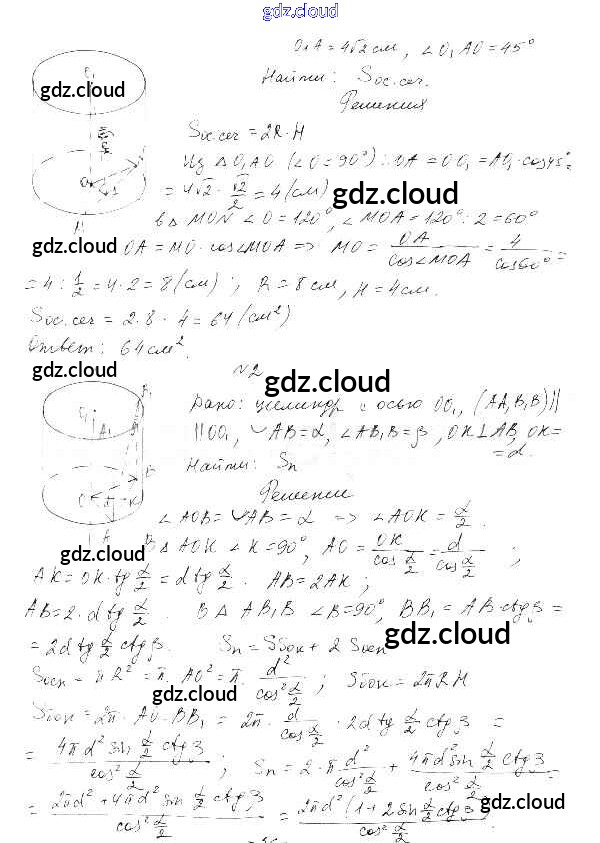 gdz.cloud
O₁A = 4√2 см, ∠O₁AO = 45°
gdz.cloud
Найти: Sос.сеч.
Решения
Sос.сеч = 2R·H
Из △O₁AO (∠O = 90°): OA = OO₁ = AO₁·cos45° =
= 4√2 · √2/2 = 4 (см)
gdz.cloud
В △ MON ∠O = 120°, ∠MOA = 120° : 2 = 60°
gdz.cloud
OA = MO · cos∠MOA => MO = OA/cos∠MOA = 4/cos60° =
= 4 : 1/2 = 4·2 = 8 (см); R = 8 см, H = 4 см.
Sос.сеч = 2·8·4 = 64 (см²)
Ответ: 64 см².
gdz.cloud
№2
gdz.cloud
Дано: цилиндр с осью OO₁, (AA₁B₁B) ||
|| OO₁, ◡AB = α, ∠AB₁B = β, OK ⊥ AB, OK =
= d.
Найти: Sп
gdz.cloud
Решения
∠AOB = ◡AB = α => ∠AOK = α/2.
gdz.cloud
В △ AOK ∠K = 90°, AO = OK/cos α/2 = d/cos α/2;
AK = OK·tg α/2 = d tg α/2. AB = 2AK;
AB = 2·d tg α/2. В △ AB₁B ∠B = 90°, BB₁ = AB·ctgβ =
= 2d tg α/2 ctgβ. Sп = Sбок + 2 Sосн
gdz.cloud
Sосн = πR² = π·AO² = π· d²/cos² α/2; Sбок = 2πRH
gdz.cloud
Sбок = 2π·AO·BB₁ = 2π· d/cos α/2 · 2d tg α/2 ctgβ =
= 4πd² sin α/2 ctgβ/cos² α/2; Sп = 2·π d²/cos² α/2 + 4πd² sin α/2 ctgβ/cos² α/2
= 2πd² + 4πd² sin α/2 ctgβ/cos² α/2 = 2πd² (1 + 2 sin α/2 ctgβ)/cos² α/2
gdz.cloud